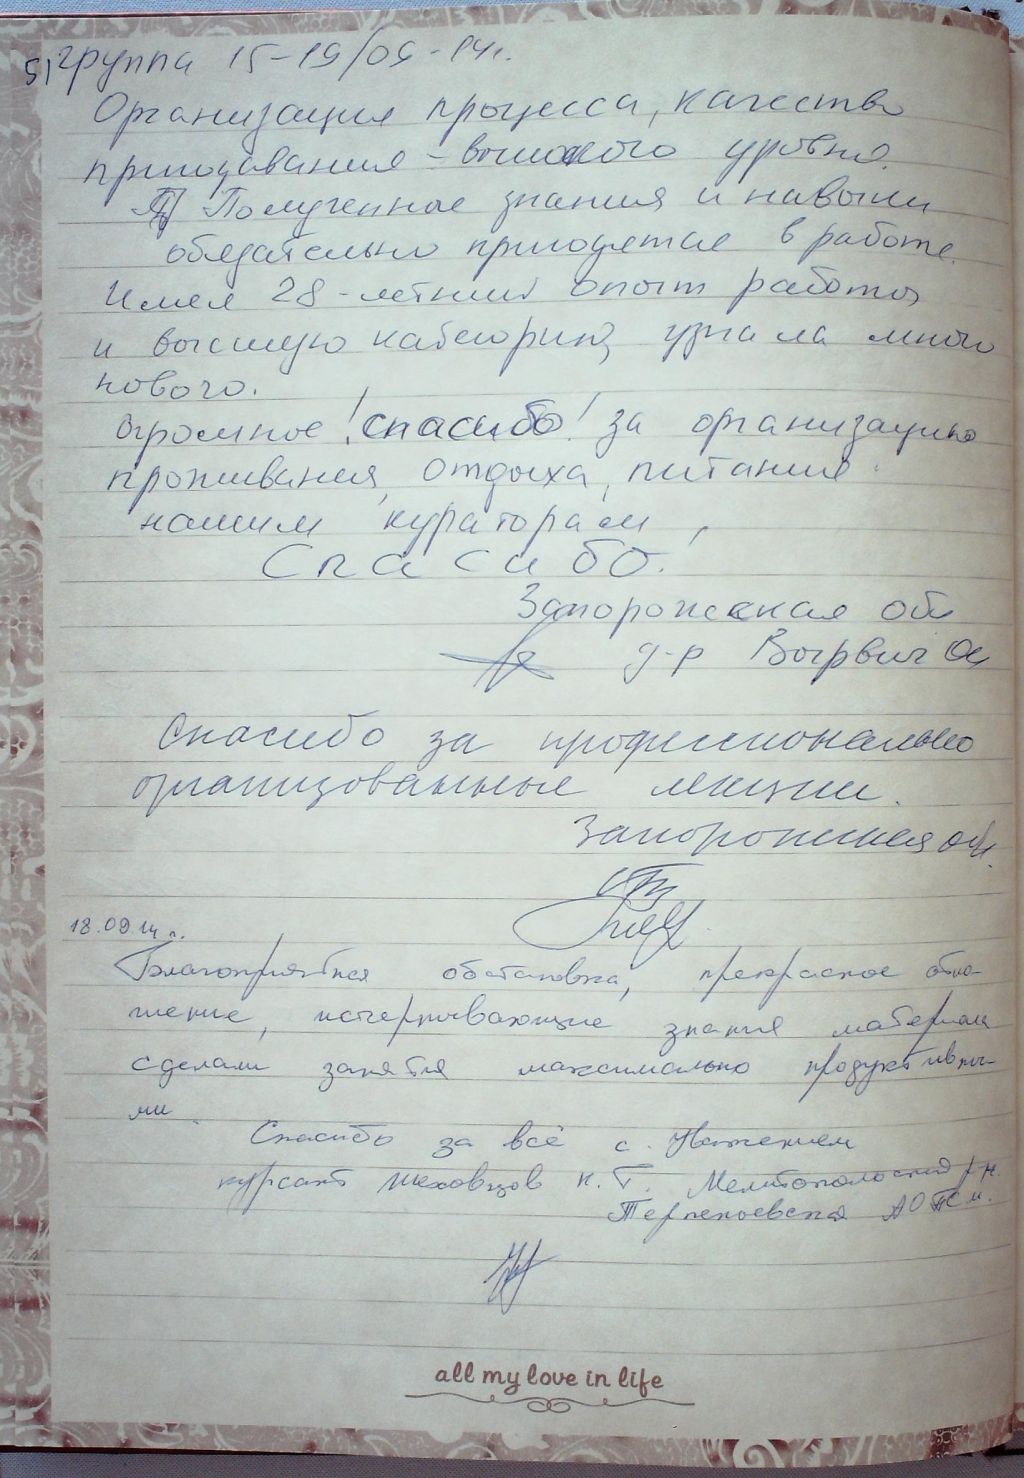 5) группа 15-19/09-14г.
Организация процесса, качество
приподавания - высокого уровня.
Полученные знания и навыки
обязательно пригодятся в работе.
Имея 28-летний опыт работы
и высшую категорию, узнала много
нового.
Огромное! спасибо! за организацию
проживания, отдыха, питания
нашим кураторам,
Спасибо!
Запорожская обл
д-р
Спасибо за профессионально
организованные лекции.
Запорожская обл.
18.09.14 г.
Благоприятная обстановка, прекрасное отно-
шение, исчерпывающие знания материала
сделали занятия максимально продуктивны-
ми.
Спасибо за всё с Уважением
курсант Шеховцов н. Г. Мелитопольский р-н.
Терпеньевская АОПСМ.
all my love in life